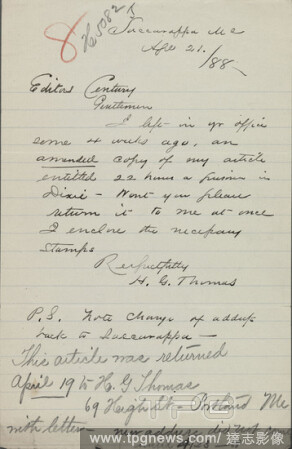 8 H5082
Saccarappa Me
Apl 21./88-
Editors Century
Gentlemen
I left in yr office
some 4 weeks ago, an
amended copy of my article
entitled 22 hours a prisoner in
Dixie - Wont you please
return it to me at once
I enclose the necessary
stamps
Respectfully
H. G. Thomas
P.S. Note change of address
back to Saccarappa -
This article was returned
April 19 to H. G Thomas
69 High St - Portland Me
with letter - new address
www.tpgnews.com/達志影像